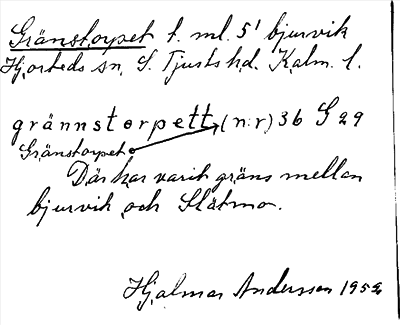 Gränstorpet t. ml. 5' bjurvik
Hjorteds sn. S. Tjusts hd. Kalm. l.
grännstorpett (n:r) 36 G 29
Gränstorpet
Där har varit gräns mellan
bjurvik och Slätmo.
Hjalmar Andersson 1952